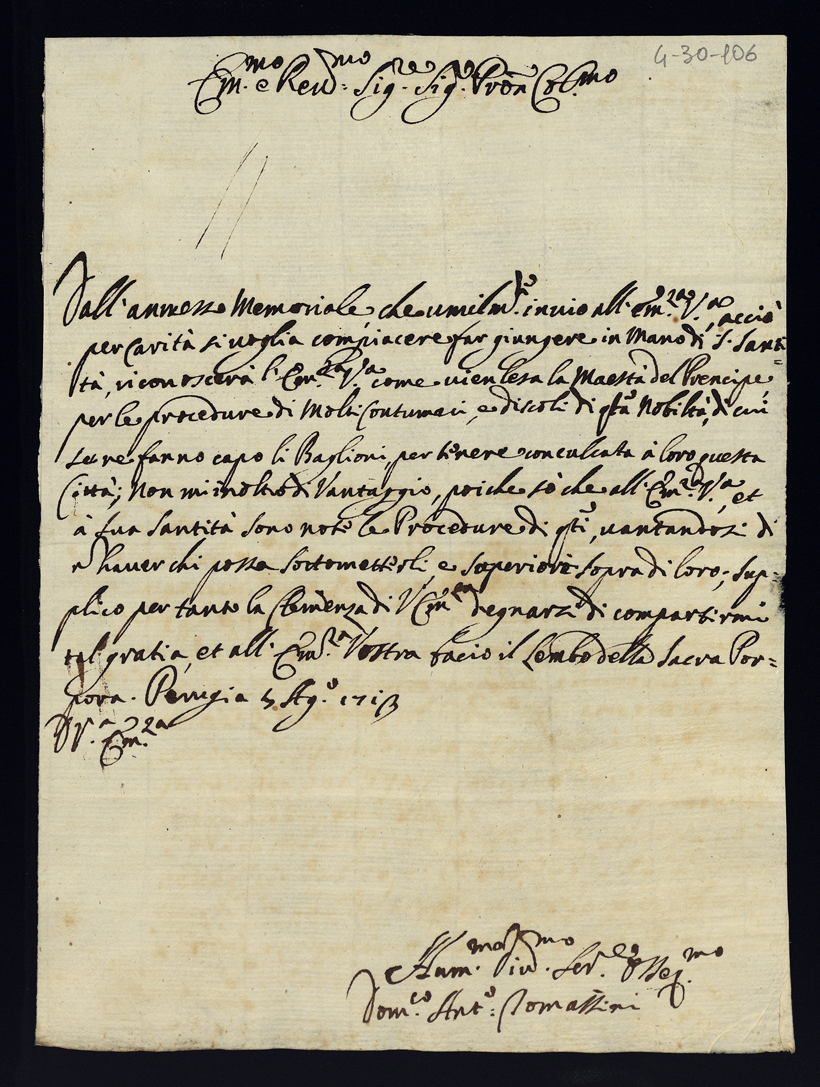 4-30-106
Em.mo e Reu.mo Sig.re Sig.re Pron Col.mo
Dall'annesso Memoriale che umilm.te inuio all'Em.za V.a, acciò
per Carità si uoglia compiacere far giungere in Mano di S. Santi=
tà, riconoscerà l'Em.za V.a come uien lesa la Maestà del Prencipe
per le procedure di Molti Contumaci, e discoli di q.ta Nobiltà, di cui
se ne fanno capo li Baglioni, per tenere conculcata à loro questa
Città; Non mi inoltro di Vantaggio, poiche sò che all'Em.za V.a, et
à Sua Santità sono note le Procedure di q.ti, uantandosi di
n hauer chi possa sottometterli e superiori sopra di loro; Sup=
plico per tanto la Clemenza di V Em.za degnarsi di compartirmi
tal gratia, et all'Em.za Vostra bacio il Lembo della Sacra Por=
pora. Perugia 5 Ag.o 1713
D V.a Em.za
Hum.mo Diu.mo Ser.e Osseq.mo
Dom.co Ant.o Tomassini